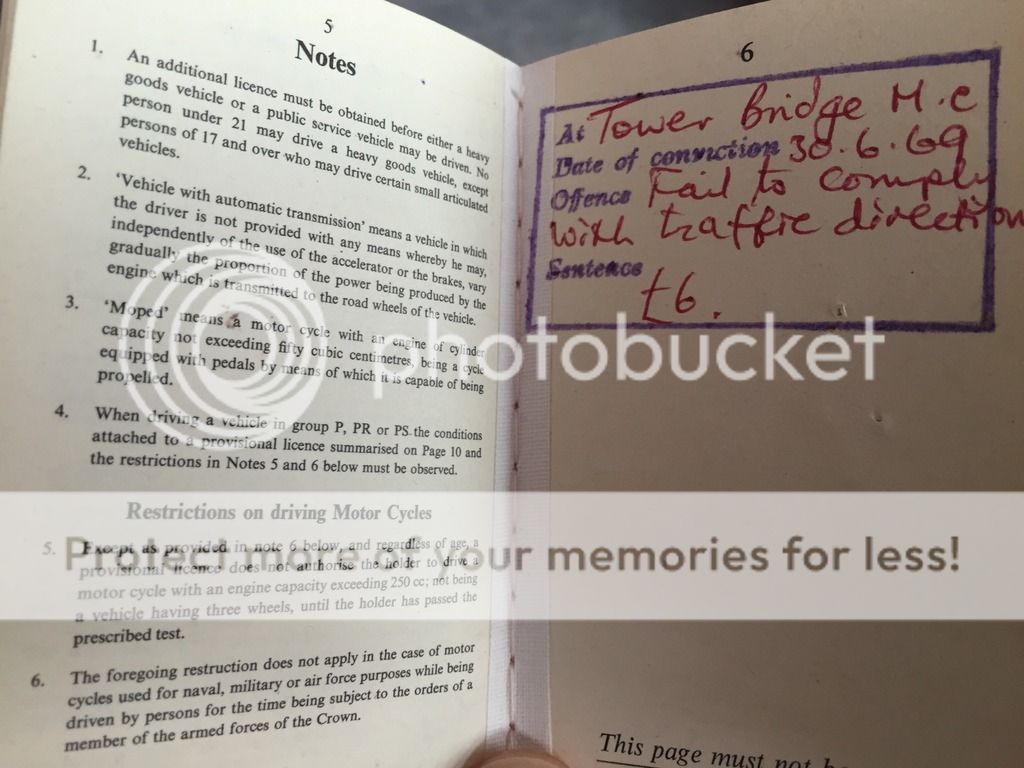 5
Notes
1. An additional licence must be obtained before either a heavy
goods vehicle or a public service vehicle may be driven. No
person under 21 may drive a heavy goods vehicle, except
persons of 17 and over who may drive certain small articulated
vehicles.
2. ‘Vehicle with automatic transmission’ means a vehicle in which
the driver is not provided with any means whereby he may,
independently of the use of the accelerator or the brakes, vary
gradually the proportion of the power being produced by the
engine which is transmitted to the road wheels of the vehicle.
3. ‘Moped’ means a motor cycle with an engine of cylinder
capacity not exceeding fifty cubic centimetres, being a cycle
equipped with pedals by means of which it is capable of being
propelled.
4. When driving a vehicle in group P, PR or PS the conditions
attached to a provisional licence summarised on Page 10 and
the restrictions in Notes 5 and 6 below must be observed.
Restrictions on driving Motor Cycles
5. Except as provided in note 6 below, and regardless of age, a
provisional licence does not authorise the holder to drive a
motor cycle with an engine capacity exceeding 250 cc; not being
a vehicle having three wheels, until the holder has passed the
prescribed test.
6. The foregoing restruction does not apply in the case of motor
cycles used for naval, military or air force purposes while being
driven by persons for the time being subject to the orders of a
member of the armed forces of the Crown.
6
At Tower Bridge M.C
Date of conviction 30.6.69
Offence Fail to comply
with traffic direction
Sentence
£6.
This page must not
photobucket
Protect more of your memories for less!